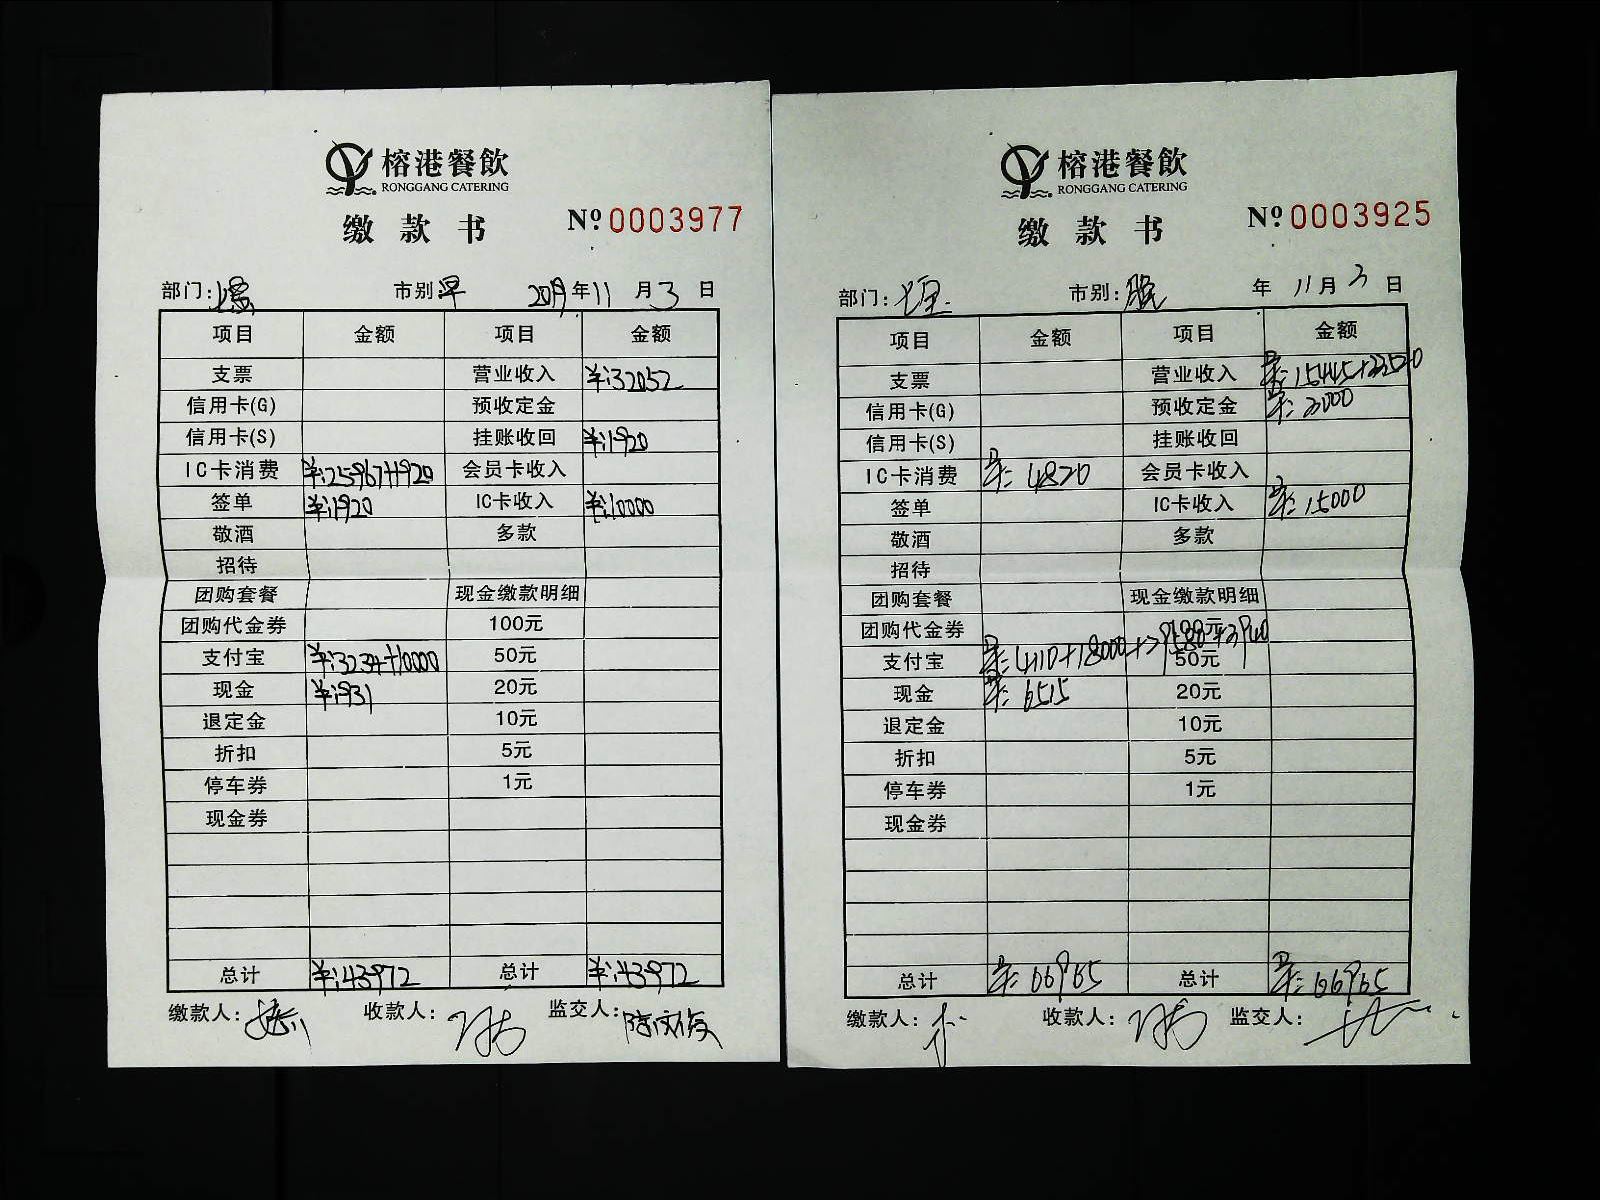 榕港餐飲
RONGGANG CATERING
缴款书 Nº 0003977
部门: 市别:早 2019年11月3日
项目 金额 项目 金额
支票 营业收入 ¥:32052
信用卡(G) 预收定金
信用卡(S) 挂账收回 ¥:1920
IC卡消费 ¥:25967+1920 会员卡收入
签单 ¥:1920 IC卡收入 ¥:10000
敬酒 多款
招待
团购套餐 现金缴款明细
团购代金券 100元
支付宝 ¥:3234+10000 50元
现金 ¥:931 20元
退定金 10元
折扣 5元
停车券 1元
现金券
总计 ¥:43972 总计 ¥:43972
缴款人: 收款人: 监交人:
榕港餐飲
RONGGANG CATERING
缴款书 Nº 0003925
部门: 市别:晚 年11月3日
项目 金额 项目 金额
支票 营业收入 ¥:15445+33520
信用卡(G) 预收定金 ¥:3000
信用卡(S) 挂账收回
IC卡消费 ¥:4820 会员卡收入
签单 IC卡收入 ¥:15000
敬酒 多款
招待
团购套餐 现金缴款明细
团购代金券 100元
支付宝 ¥:4110+18000+29580+3940 50元
现金 ¥:6515 20元
退定金 10元
折扣 5元
停车券 1元
现金券
总计 ¥:66965 总计 ¥:66965
缴款人: 收款人: 监交人: